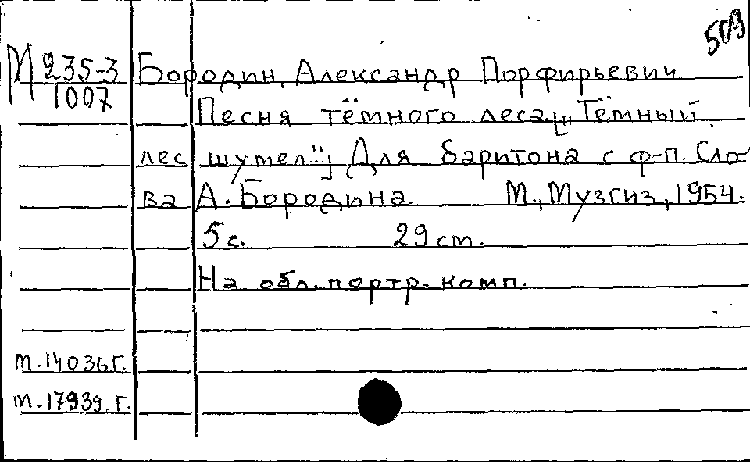 503
М 235-3 Бородин, Александр Порфирьевич
1007
Песня тёмного леса ["Тёмный
лес шумел"] Для баритона с ф-п. Сло-
ва А. Бородина М., Музгиз, 1954.
5 с. 29 см.
На обл. портр. комп.
М.14036г.
М.17939.г.